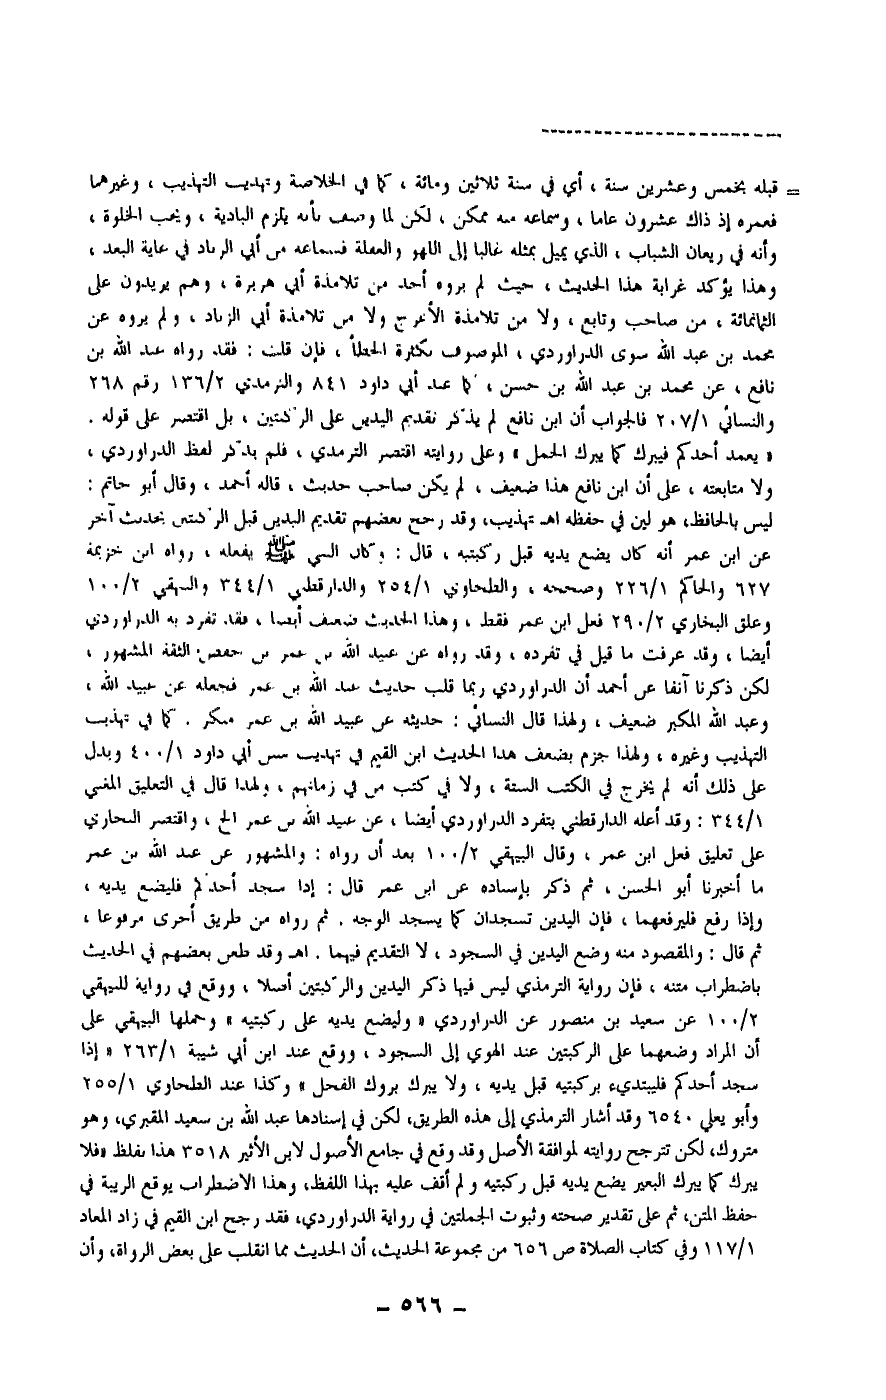 = قبله بخمس وعشرين سنة ، أي في سنة ثلاثين ومائة ، كما في الخلاصة وتهذيب التهذيب ، وغيرهما
فعمره إذ ذاك عشرون عاما ، وسماعه منه ممكن ، لكن لما وصف بأنه يلزم البادية ، ويحب الخلوة ،
وأنه في ريعان الشباب ، الذي يميل بمثله غالبا إلى اللهو والغفلة فسماعه من أبي الزناد في غاية البعد ،
وهذا يؤكد غرابة هذا الحديث ، حيث لم يروه أحد من تلامذة أبي هريرة ، وهم يزيدون على
الثمانمائة ، من صاحب وتابع ، ولا من تلامذة الأعرج ولا من تلامذة أبي الزناد ، ولم يروه عن
محمد بن عبد الله سوى الدراوردي ، الموصوف بكثرة الخطأ ، فإن قلت : فقد رواه عبد الله بن
نافع ، عن محمد بن عبد الله بن حسن ، كما عند أبي داود ٨٤١ والترمذي ١٣٦/٢ رقم ٢٦٨
والنسائي ٢٠٧/١ فالجواب أن ابن نافع لم يذكر تقديم اليدين على الركبتين ، بل اقتصر على قوله .
« يعمد أحدكم فيبرك كما يبرك الجمل » وعلى روايته اقتصر الترمذي ، فلم يذكر لفظ الدراوردي ،
ولا متابعته ، على أن ابن نافع هذا ضعيف ، لم يكن صاحب حديث ، قاله أحمد ، وقال أبو حاتم :
ليس بالحافظ، هو لين في حفظه اهـ تهذيب، وقد رجح بعضهم تقديم اليدين قبل الركبتين بحديث آخر
عن ابن عمر أنه كان يضع يديه قبل ركبتيه ، قال : وكان النبي ﷺ يفعله ، رواه ابن خزيمة
٦٢٧ والحاكم ٢٢٦/١ وصححه ، والطحاوي ٢٥٤/١ والدارقطني ٣٤٤/١ والبيهقي ١٠٠/٢
وعلق البخاري ٢٩٠/٢ فعل ابن عمر فقط ، وهذا الحديث ضعيف أيضا ، فقد تفرد به الدراوردي
أيضا ، وقد عرفت ما قيل في تفرده ، وقد رواه عن عبيد الله بن عمر بن حفص الثقة المشهور ،
لكن ذكرنا آنفا عن أحمد أن الدراوردي ربما قلب حديث عبد الله بن عمر فجعله عن عبيد الله ،
وعبد الله المكبر ضعيف ، ولهذا قال النسائي : حديثه عن عبيد الله بن عمر منكر . كما في تهذيب
التهذيب وغيره ، ولهذا جزم بضعف هذا الحديث ابن القيم في تهذيب سنن أبي داود ٤٠٠/١ ويدل
على ذلك أنه لم يخرج في الكتب الستة ، ولا في كتب من في زمانهم ، ولهذا قال في التعليق المغني
٣٤٤/١ : وقد أعله الدارقطني بتفرد الدراوردي أيضا ، عن عبيد الله بن عمر الخ ، واقتصر البخاري
على تعليق فعل ابن عمر ، وقال البيهقي ١٠٠/٢ بعد أن رواه : والمشهور عن عبد الله بن عمر
ما أخبرنا أبو الحسن ، ثم ذكر بإسناده عن ابن عمر قال : إذا سجد أحدكم فليضع يديه ،
وإذا رفع فليرفعهما ، فإن اليدين تسجدان كما يسجد الوجه . ثم رواه من طريق أخرى مرفوعا ،
ثم قال : والمقصود منه وضع اليدين في السجود ، لا التقديم فيهما . اهـ وقد طعن بعضهم في الحديث
باضطراب متنه ، فإن رواية الترمذي ليس فيها ذكر اليدين والركبتين أصلا ، ووقع في رواية للبيهقي
١٠٠/٢ عن سعيد بن منصور عن الدراوردي « وليضع يديه على ركبتيه » وحملها البيهقي على
أن المراد وضعهما على الركبتين عند الهوي إلى السجود ، ووقع عند ابن أبي شيبة ٢٦٣/١ « إذا
سجد أحدكم فليبتديء بركبتيه قبل يديه ، ولا يبرك بروك الفحل » وكذا عند الطحاوي ٢٥٥/١
وأبو يعلي ٦٥٤٠ وقد أشار الترمذي إلى هذه الطريق، لكن في إسنادها عبد الله بن سعيد المقبري، وهو
متروك، لكن تترجح روايته لموافقة الأصل وقد وقع في جامع الأصول لابن الأثير ٣٥١٨ هذا بلفظ «فلا
يبرك كما يبرك البعير يضع يديه قبل ركبتيه ولم أقف عليه بهذا اللفظ، وهذا الاضطراب يوقع الريبة في
حفظ المتن، ثم على تقدير صحته وثبوت الجملتين في رواية الدراوردي، فقد رجح ابن القيم في زاد المعاد
١١٧/١ وفي كتاب الصلاة ص ٦٥٦ من مجموعة الحديث، أن الحديث مما انقلب على بعض الرواة، وأن
– ٥٦٦ –